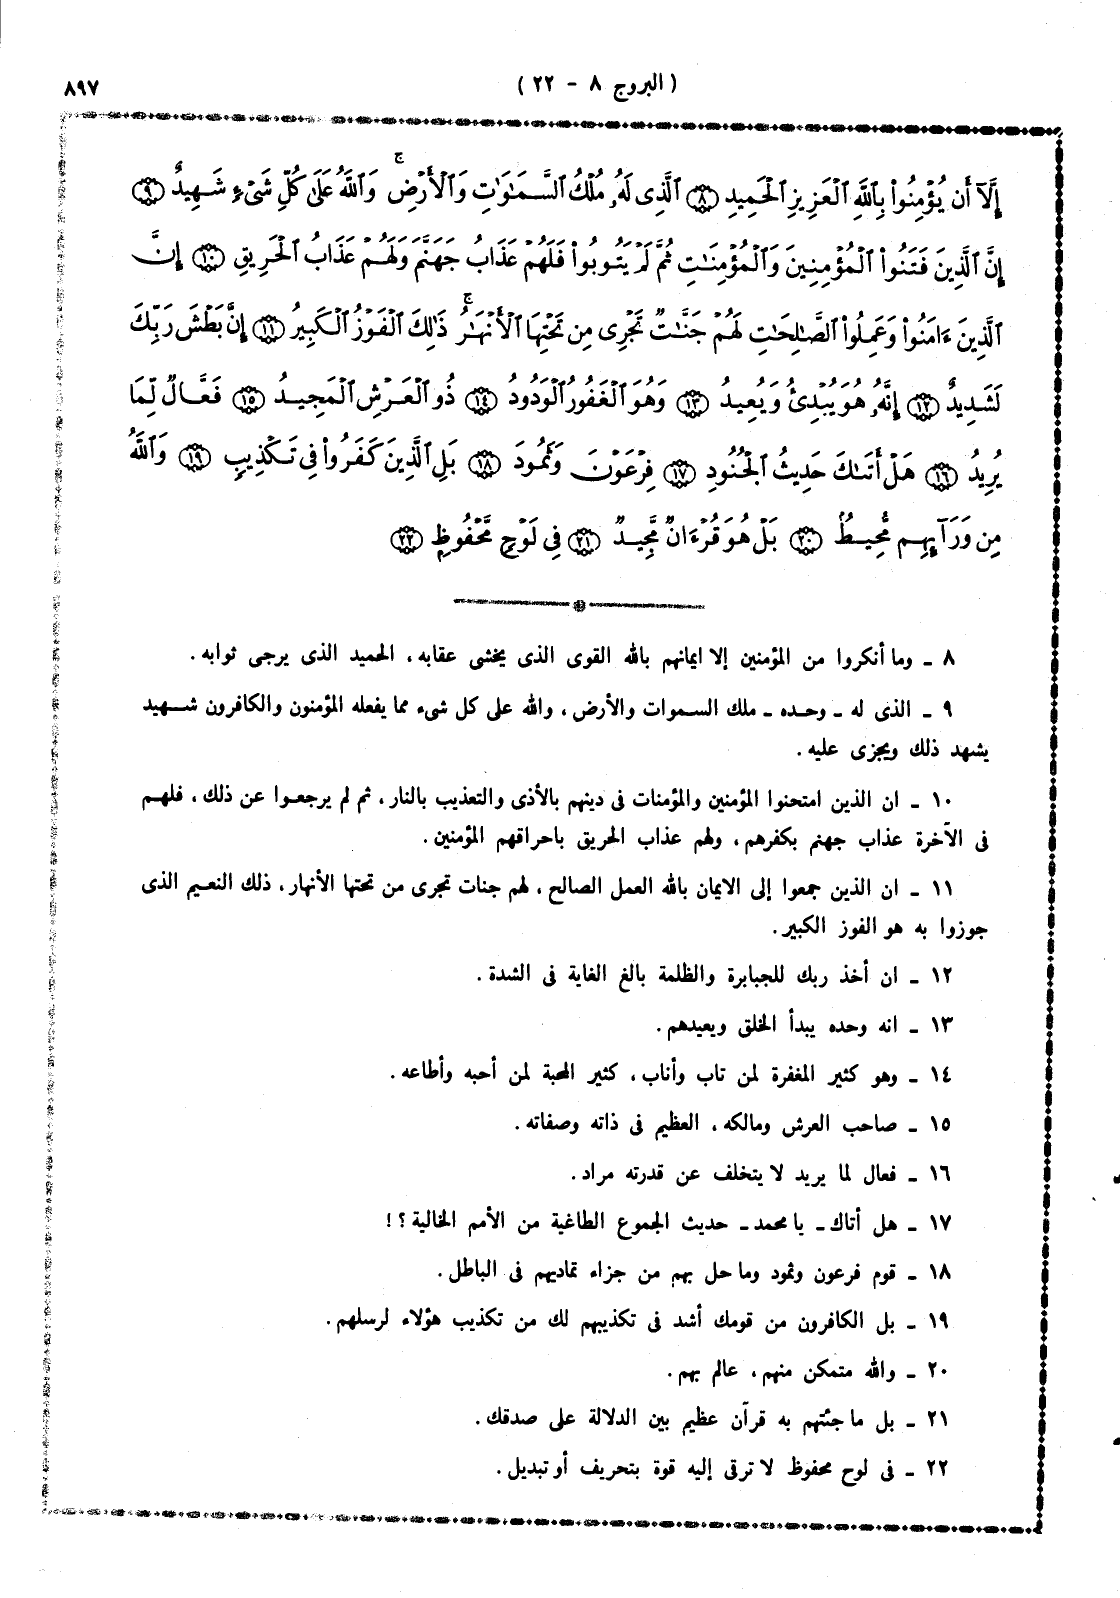 ( البروج ٨ - ٢٢ )
٨٩٧
إِلَّآ أَن يُؤْمِنُوا۟ بِٱللَّهِ ٱلْعَزِيزِ ٱلْحَمِيدِ ٨ ٱلَّذِى لَهُۥ مُلْكُ ٱلسَّمَـٰوَٰتِ وَٱلْأَرْضِ ۚ وَٱللَّهُ عَلَىٰ كُلِّ شَىْءٍ شَهِيدٌ ٩
إِنَّ ٱلَّذِينَ فَتَنُوا۟ ٱلْمُؤْمِنِينَ وَٱلْمُؤْمِنَـٰتِ ثُمَّ لَمْ يَتُوبُوا۟ فَلَهُمْ عَذَابُ جَهَنَّمَ وَلَهُمْ عَذَابُ ٱلْحَرِيقِ ١٠ إِنَّ
ٱلَّذِينَ ءَامَنُوا۟ وَعَمِلُوا۟ ٱلصَّـٰلِحَـٰتِ لَهُمْ جَنَّـٰتٌ تَجْرِى مِن تَحْتِهَا ٱلْأَنْهَـٰرُ ۚ ذَٰلِكَ ٱلْفَوْزُ ٱلْكَبِيرُ ١١ إِنَّ بَطْشَ رَبِّكَ
لَشَدِيدٌ ١٢ إِنَّهُۥ هُوَ يُبْدِئُ وَيُعِيدُ ١٣ وَهُوَ ٱلْغَفُورُ ٱلْوَدُودُ ١٤ ذُو ٱلْعَرْشِ ٱلْمَجِيدُ ١٥ فَعَّالٌ لِّمَا
يُرِيدُ ١٦ هَلْ أَتَىٰكَ حَدِيثُ ٱلْجُنُودِ ١٧ فِرْعَوْنَ وَثَمُودَ ١٨ بَلِ ٱلَّذِينَ كَفَرُوا۟ فِى تَكْذِيبٍ ١٩ وَٱللَّهُ
مِن وَرَآئِهِم مُّحِيطٌ ٢٠ بَلْ هُوَ قُرْءَانٌ مَّجِيدٌ ٢١ فِى لَوْحٍ مَّحْفُوظٍ ٢٢
٨ ـ وما أنكروا من المؤمنين إلا ايمانهم بالله القوى الذى يخشى عقابه، الحميد الذى يرجى ثوابه.
٩ ـ الذى له ـ وحده ـ ملك السموات والأرض، والله على كل شىء مما يفعله المؤمنون والكافرون شهيد
يشهد ذلك ويجزى عليه.
١٠ ـ ان الذين امتحنوا المؤمنين والمؤمنات فى دينهم بالأذى والتعذيب بالنار، ثم لم يرجعوا عن ذلك، فلهم
فى الآخرة عذاب جهنم بكفرهم، ولهم عذاب الحريق باحراقهم المؤمنين.
١١ ـ ان الذين جمعوا إلى الايمان بالله العمل الصالح، لهم جنات تجرى من تحتها الأنهار، ذلك النعيم الذى
جوزوا به هو الفوز الكبير.
١٢ ـ ان أخذ ربك للجبابرة والظلمة بالغ الغاية فى الشدة.
١٣ ـ انه وحده يبدأ الخلق ويعيدهم.
١٤ ـ وهو كثير المغفرة لمن تاب وأناب، كثير المحبة لمن أحبه وأطاعه.
١٥ ـ صاحب العرش ومالكه، العظيم فى ذاته وصفاته.
١٦ ـ فعال لما يريد لا يتخلف عن قدرته مراد.
١٧ ـ هل أتاك ـ يا محمد ـ حديث الجموع الطاغية من الأمم الخالية؟!
١٨ ـ قوم فرعون وثمود وما حل بهم من جزاء تماديهم فى الباطل.
١٩ ـ بل الكافرون من قومك أشد فى تكذيبهم لك من تكذيب هؤلاء لرسلهم.
٢٠ ـ والله متمكن منهم، عالم بهم.
٢١ ـ بل ما جئتهم به قرآن عظيم بين الدلالة على صدقك.
٢٢ ـ فى لوح محفوظ لا ترقى إليه قوة بتحريف أو تبديل.